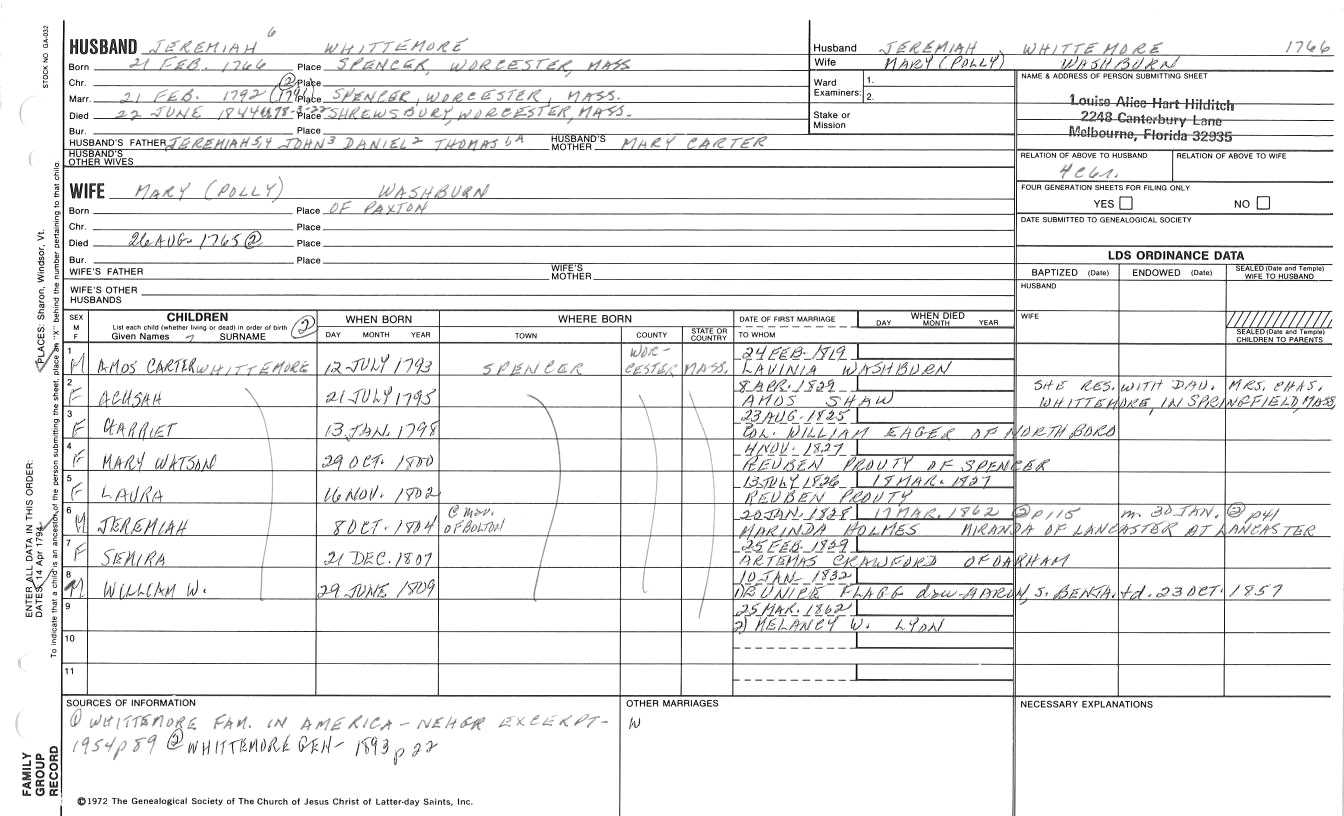 STOCK NO GA-032
HUSBAND JEREMIAH 6 WHITTEMORE
Born 21 FEB. 1766 Place SPENCER, WORCESTER, MASS
Chr. ② Place
Marr. 21 FEB. 1792 (1791 Place SPENCER, WORCESTER, MASS.
Died 22 JUNE 1844 78-3-22 Place SHREWSBURY, WORCESTER, MASS.
Bur. Place
HUSBAND'S FATHER JEREMIAH 5,4 JOHN 3 DANIEL 2 THOMAS 1A HUSBAND'S MOTHER MARY CARTER
HUSBAND'S OTHER WIVES
WIFE MARY (POLLY) WASHBURN
Born Place OF PAXTON
Chr. Place
Died 26 AUG. 1765 ② Place
Bur. Place
WIFE'S FATHER WIFE'S MOTHER
WIFE'S OTHER HUSBANDS
Husband JEREMIAH WHITTEMORE 1766
Wife MARY (POLLY) WASHBURN
Ward Examiners: 1. 2.
Stake or Mission
NAME & ADDRESS OF PERSON SUBMITTING SHEET
Louise Alice Hart Hilditch
2248 Canterbury Lane
Melbourne, Florida 32935
RELATION OF ABOVE TO HUSBAND RELATION OF ABOVE TO WIFE
4c6r.
FOUR GENERATION SHEETS FOR FILING ONLY
YES NO
DATE SUBMITTED TO GENEALOGICAL SOCIETY
LDS ORDINANCE DATA
BAPTIZED (Date) ENDOWED (Date) SEALED (Date and Temple) WIFE TO HUSBAND
HUSBAND
WIFE
SEALED (Date and Temple) CHILDREN TO PARENTS
SEX M F CHILDREN List each child (whether living or dead) in order of birth Given Names SURNAME ② WHEN BORN DAY MONTH YEAR WHERE BORN TOWN COUNTY STATE OR COUNTRY DATE OF FIRST MARRIAGE TO WHOM WHEN DIED DAY MONTH YEAR
1 M AMOS CARTER WHITTEMORE 12 JULY 1793 SPENCER WORCESTER MASS. 24 FEB. 1819
LAVINIA WASHBURN
2 F ACHSAH 21 JULY 1795 8 APR. 1829
AMOS SHAW
SHE RES. WITH DAU. MRS. CHAS.
WHITTEMORE, IN SPRINGFIELD, MASS,
3 F HARRIET 13 JAN. 1798 23 AUG. 1825
COL. WILLIAM EAGER OF NORTHBORO
4 F MARY WATSON 29 OCT. 1800 4 NOV. 1827
REUBEN PROUTY OF SPENCER
5 F LAURA 16 NOV. 1802 13 JULY 1826 18 MAR. 1827
REUBEN PROUTY
6 M JEREMIAH 8 OCT. 1804 @ MOV. OF BOLTON 20 JAN. 1828 17 MAR. 1862 ② p115 m. 30 JAN. ② p41
MARINDA HOLMES MIRANDA OF LANCASTER AT LANCASTER
7 F SEMIRA 21 DEC. 1807 25 FEB. 1829
ARTEMAS CRAWFORD OF OAKHAM
8 M WILLIAM W. 29 JUNE 1809 10 JAN. 1832
1) EUNICE FLAGG daw AARON, S. BENTA. + d. 23 OCT. 1857
9 25 MAR. 1862
2) MELANCY W. LYON
10
11
SOURCES OF INFORMATION
① WHITTEMORE FAM. IN AMERICA - NEHGR EXCERPT-
1954 p 89 ② WHITTEMORE GEN- 1893 p 22
OTHER MARRIAGES
W
NECESSARY EXPLANATIONS
©1972 The Genealogical Society of The Church of Jesus Christ of Latter-day Saints, Inc.
FAMILY GROUP RECORD
ENTER ALL DATA IN THIS ORDER:
DATES: 14 Apr 1794
PLACES: Sharon, Windsor, Vt.
To indicate that a child is an ancestor of the person submitting the sheet, place an "X" behind the number pertaining to that child.